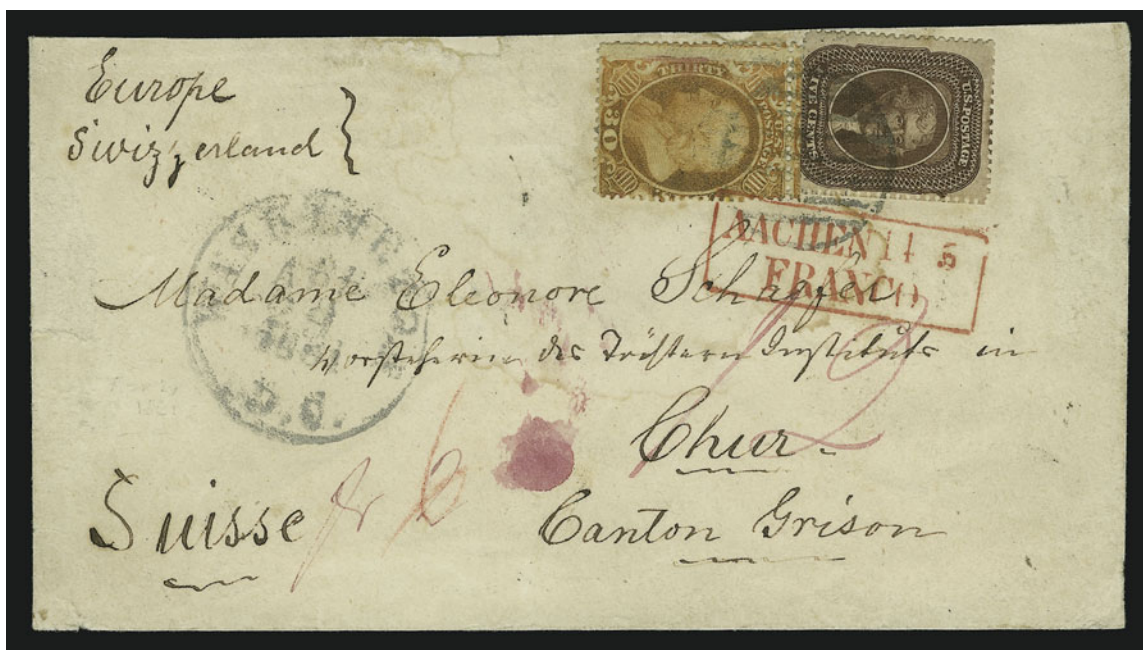 Europe
Swizzerland
THIRTY
U.S.
POSTAGE
30
U.S. POSTAGE
FIVE CENTS
AACHEN 14 5
FRANCO
Madame Eleonore Schäfer
Vorsteherin des Töchtern Instituts in
Chur.
Canton Grison
Suisse
fr 6
12
S.C.